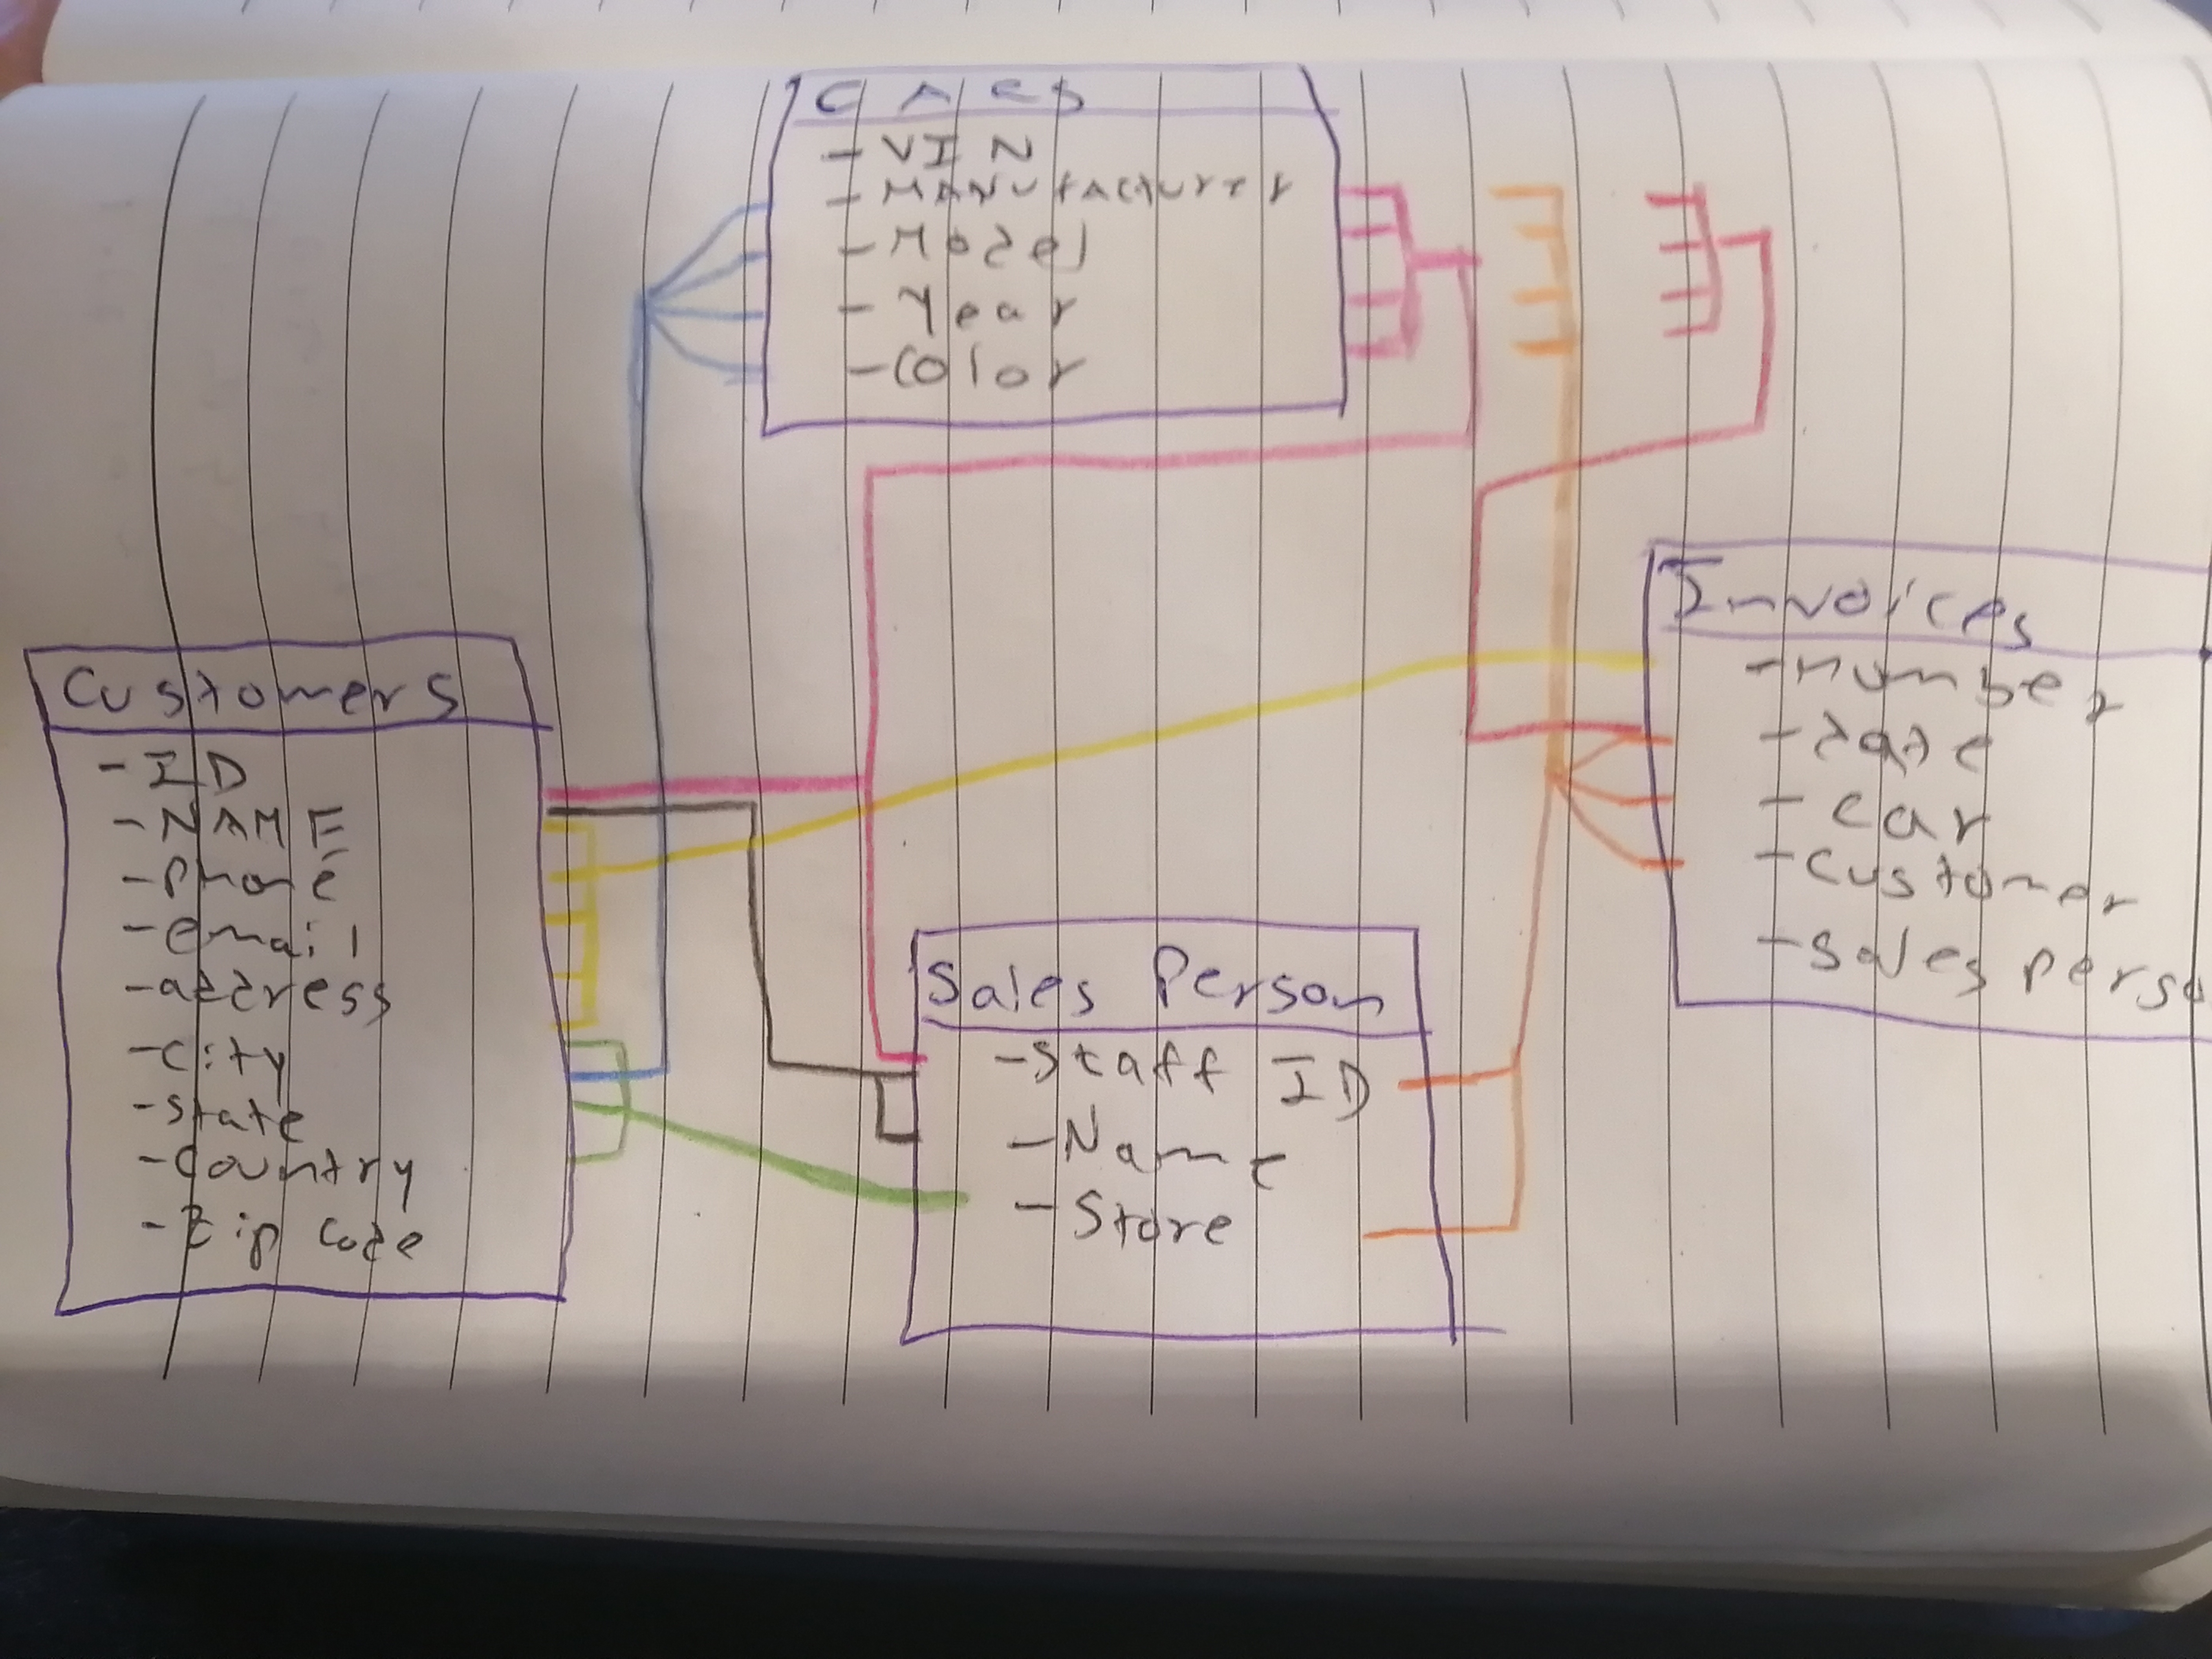 CARS
- VIN
- MANUfActurer
- Model
- Year
- Color
Customers
- ID
- NAME
- Phone
- email
- address
- City
- State
- Country
- Zip Code
Sales Person
- Staff ID
- Name
- Store
Invoices
- number
- date
- car
- Customer
- Sales perso